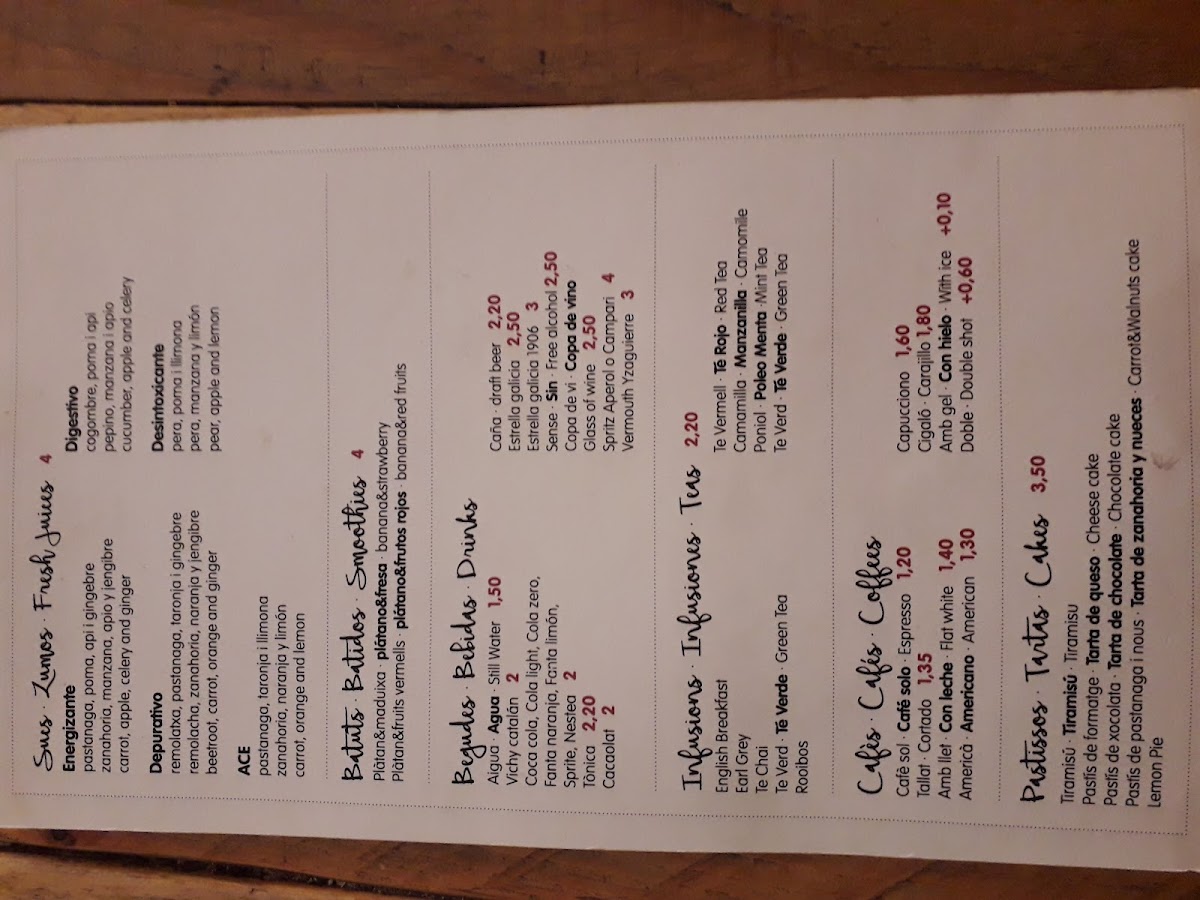 Sucs · Zumos · Fresh Juices 4
Energizante
pastanaga, poma, api i gingebre
zanahoria, manzana, apio y jengibre
carrot, apple, celery and ginger
Depurativo
remolatxa, pastanaga, taronja i gingebre
remolacha, zanahoria, naranja y jengibre
beetroot, carrot, orange and ginger
ACE
pastanaga, taronja i llimona
zanahoria, naranja y limón
carrot, orange and lemon
Digestivo
cogombre, poma i api
pepino, manzana i apio
cucumber, apple and celery
Desintoxicante
pera, poma i llimona
pera, manzana y limón
pear, apple and lemon
Batuts · Batidos · Smoothies 4
Plàtan&maduixa · plátano&fresa · banana&strawberry
Plàtan&fruits vermells · plátano&frutos rojos · banana&red fruits
Begudes · Bebidas · Drinks
Aigua · Agua · Still Water 1,50
Vichy catalán 2
Coca cola, Cola light, Cola zero,
Fanta naranja, Fanta limón,
Sprite, Nestea 2
Tònica 2,20
Cacaolat 2
Caña · draft beer 2,20
Estrella galicia 2,50
Estrella galicia 1906 3
Sense · Sin · Free alcohol 2,50
Copa de vi · Copa de vino
Glass of wine 2,50
Spritz Aperol o Campari 4
Vermouth Yzaguierre 3
Infusions · Infusiones · Teas 2,20
English Breakfast
Earl Grey
Te Chai
Te Verd · Té Verde · Green Tea
Rooibos
Te Vermell · Té Rojo · Red Tea
Camamilla · Manzanilla · Camomille
Poniol · Poleo Menta · Mint Tea
Te Verd · Té Verde · Green Tea
Cafès · Cafés · Coffees
Cafè sol · Café solo · Espresso 1,20
Tallat · Cortado 1,35
Amb llet · Con leche · Flat white 1,40
Americà · Americano · American 1,30
Capucciono 1,60
Cigaló · Carajillo 1,80
Amb gel · Con hielo · With ice +0,10
Doble · Double shot +0,60
Pastissos · Tartas · Cakes 3,50
Tiramisú · Tiramisú · Tiramisu
Pastís de formatge · Tarta de queso · Cheese cake
Pastís de xocolata · Tarta de chocolate · Chocolate cake
Pastís de pastanaga i nous · Tarta de zanahoria y nueces · Carrot&Walnuts cake
Lemon Pie